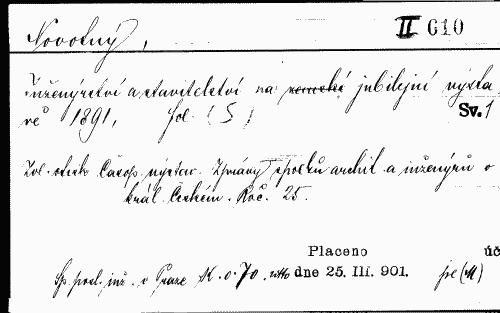 Novotný, II G10
Inženýrství a stavitelství na zemské jubilejní výsta
vě 1891, fol. (S) Sv. 1
Zvl. otisk Časop. výstav. Zprávy spolku archit. a inženýrů v
král. Českém. Roč. 25.
Placeno úč
Sp. posl. inž. v Praze K. 0.70 netto dne 25. III. 901. pr (M)